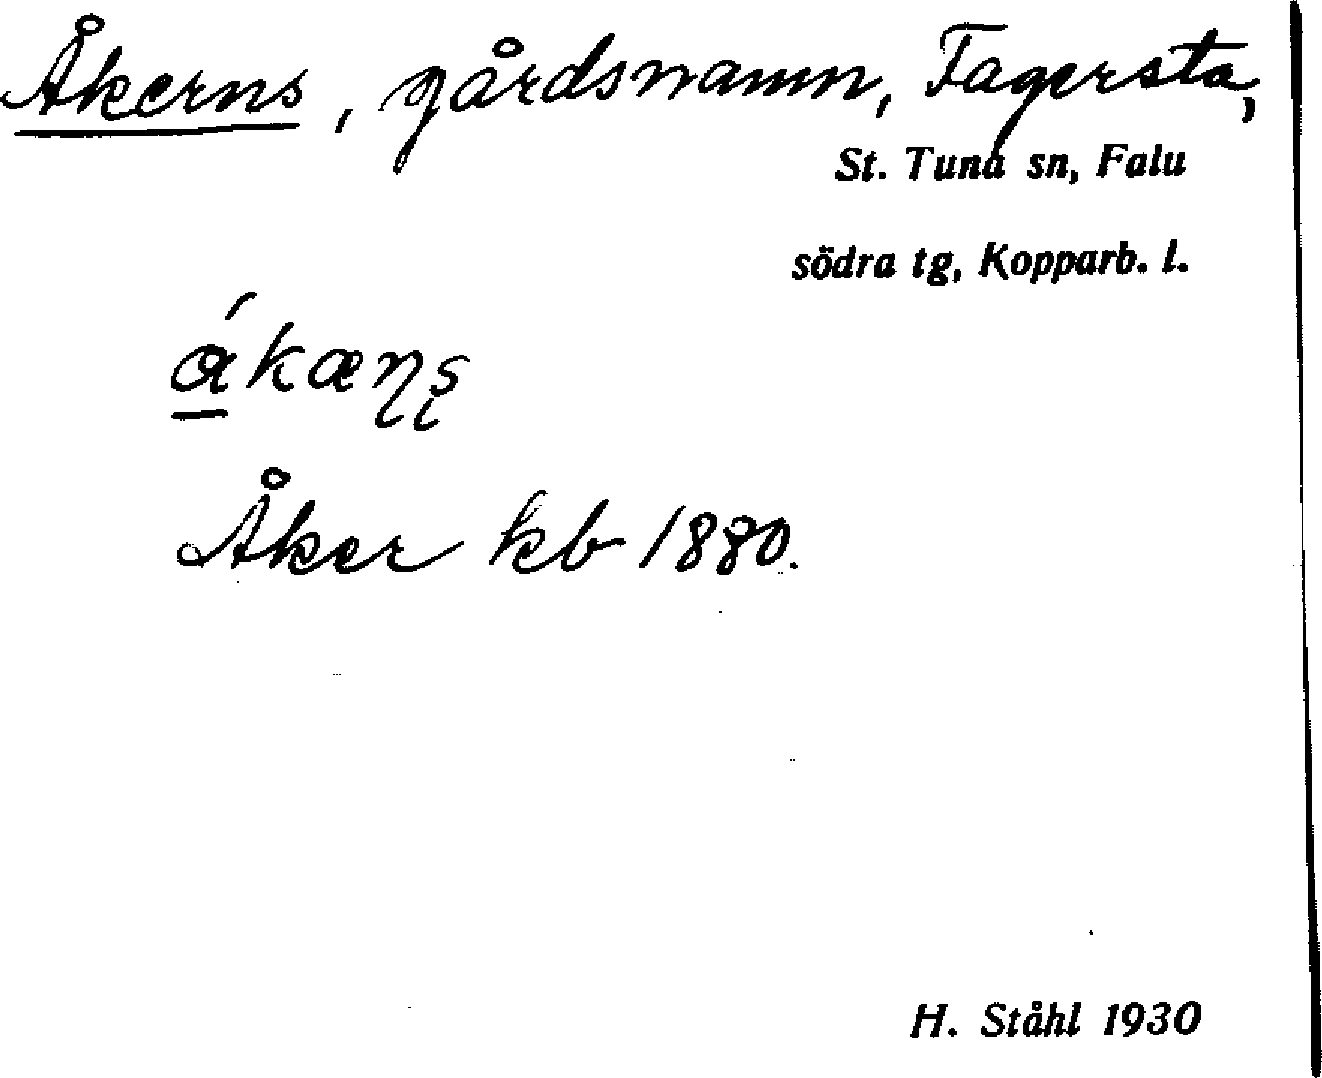 Åkerns, gårdsnamn, Fagersta,
St. Tuna sn, Falu
södra tg, Kopparb. l.
á̱kæɳʂ
Åker kb 1880.
H. Ståhl 1930